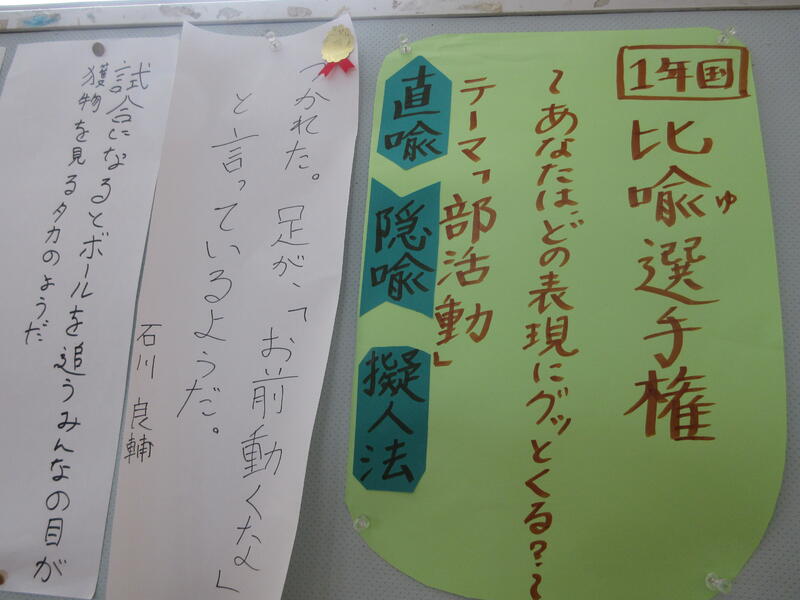 1年国
比喩選手権
ゆ
～あなたは、どの表現にグッとくる?～
テーマ「部活動」
直喩
隠喩
擬人法
つかれた。足が、「お前動くな」
と言っているようだ。
石川 良輔
試合になるとボールを追うみんなの目が
獲物を見るタカのようだ